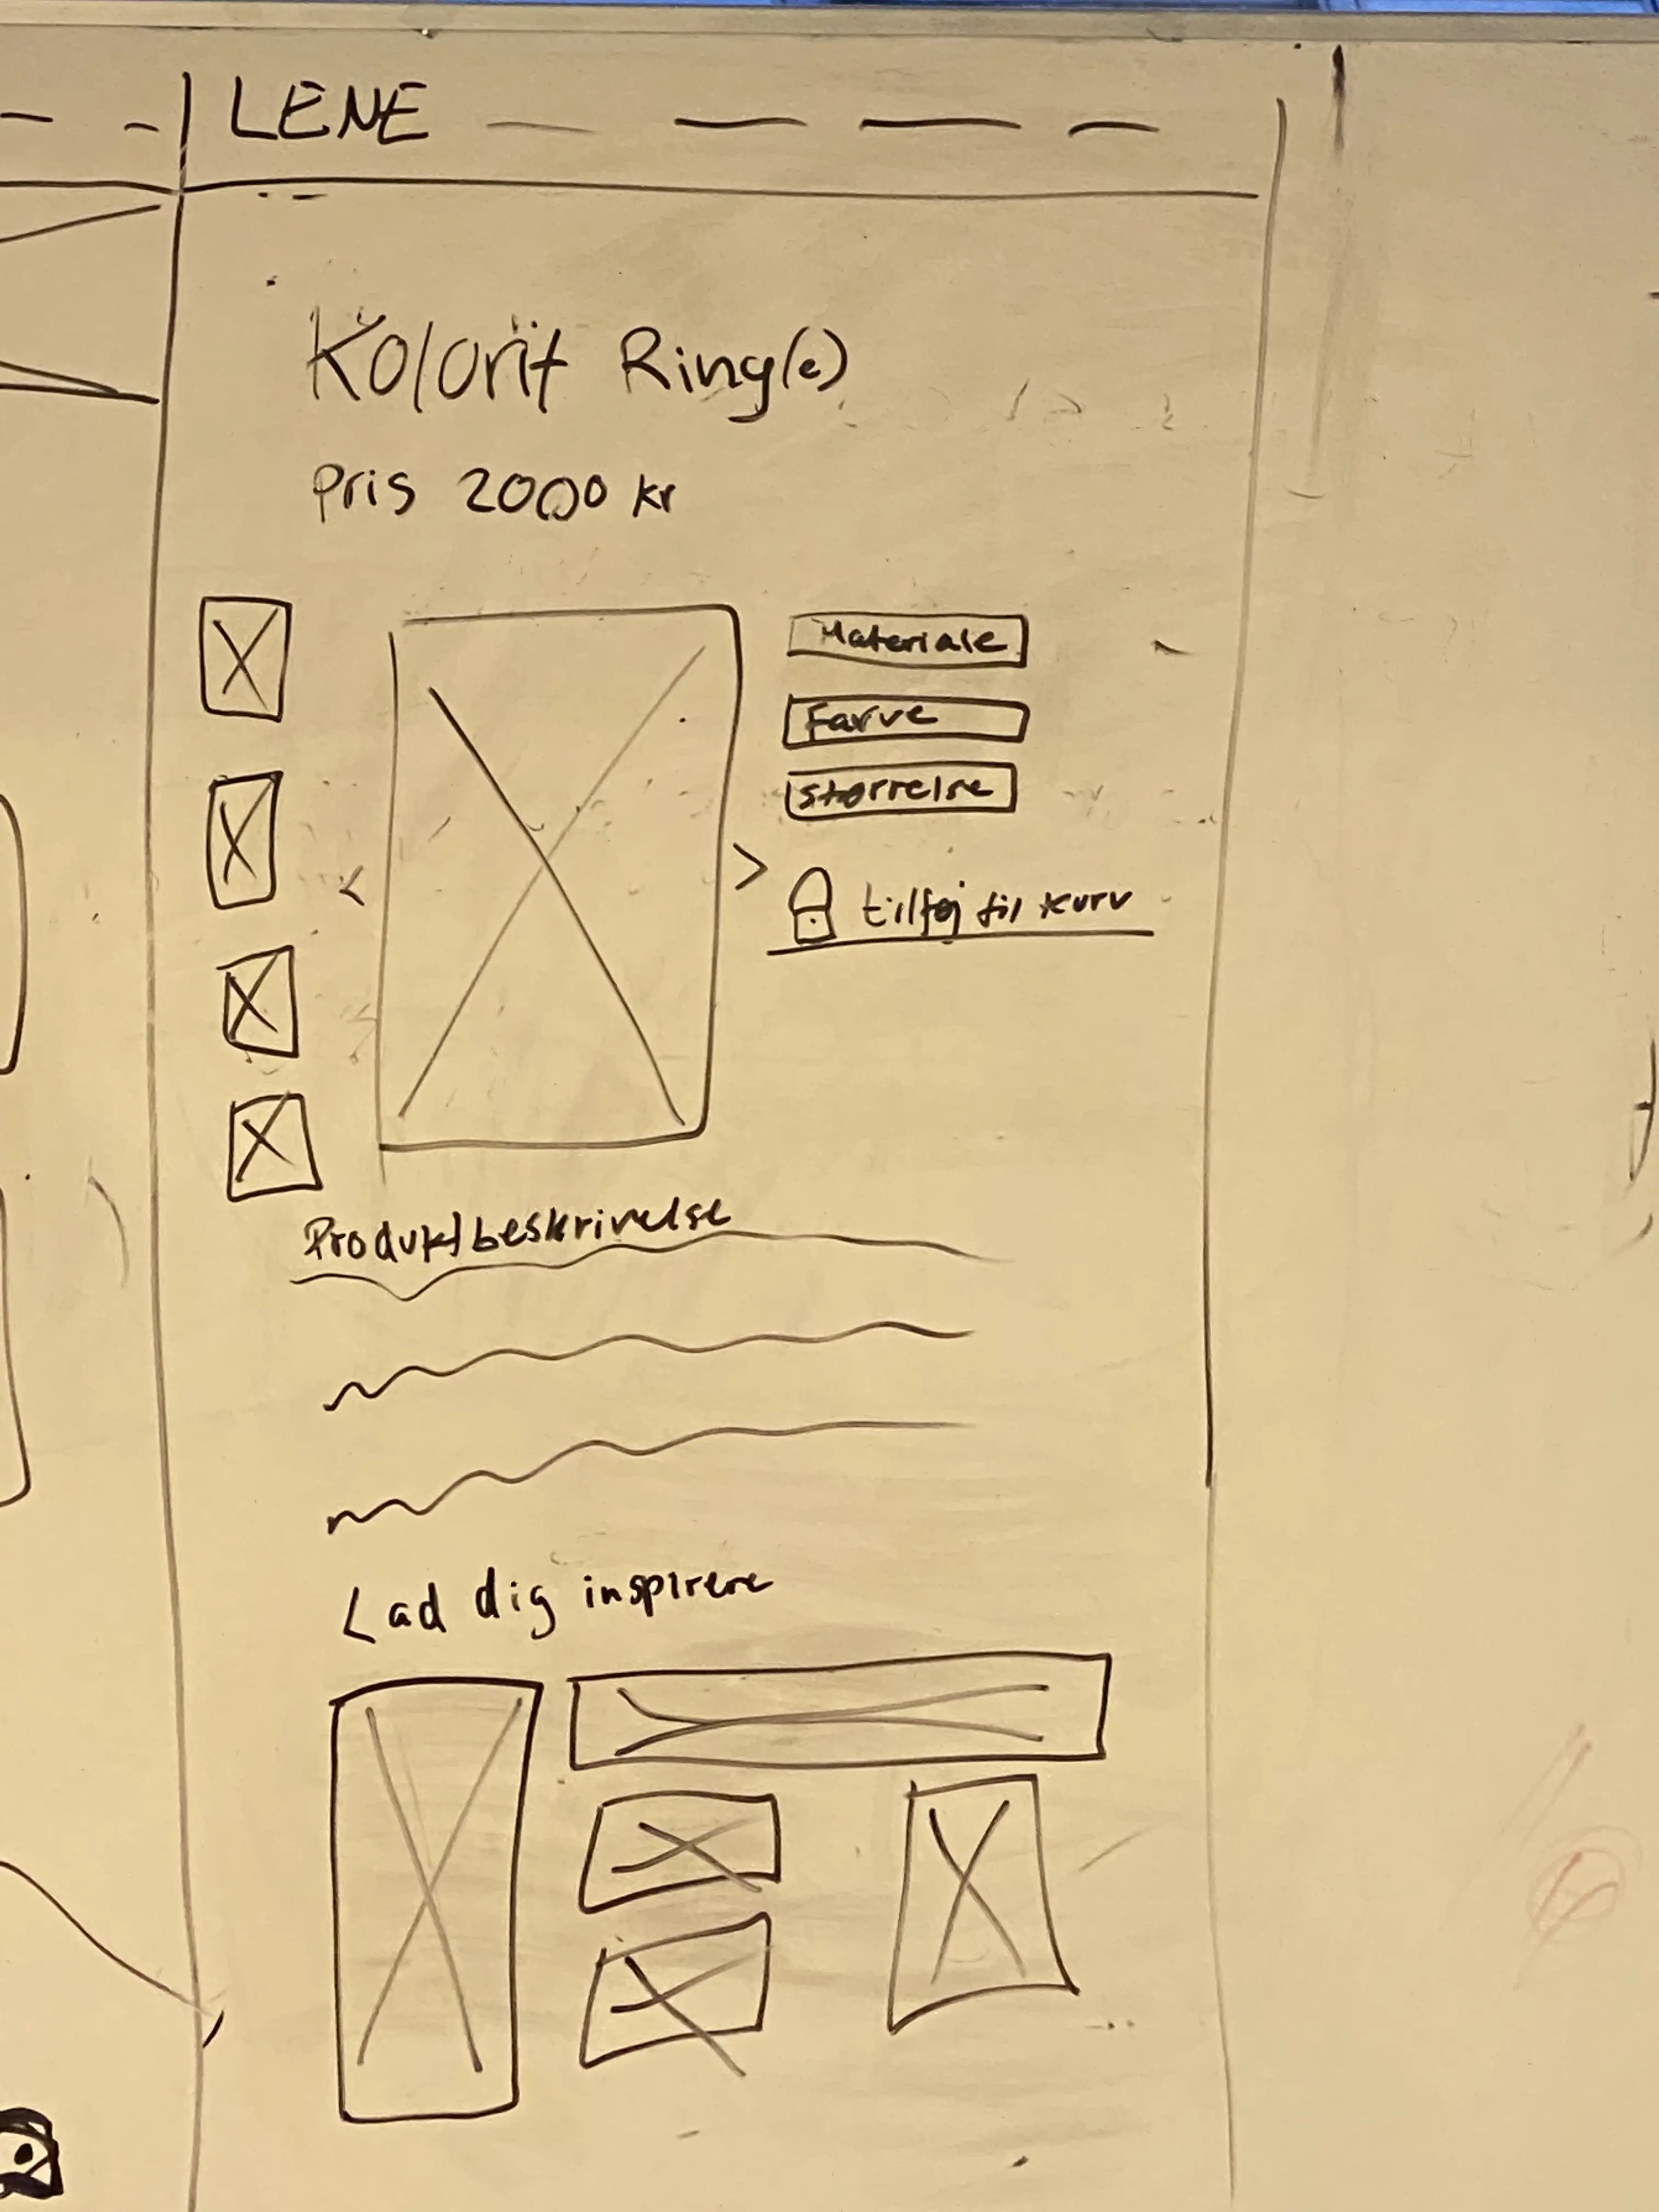 LENE
Kolorit Ring(e)
Pris 2000 kr
Materiale
Farve
Størrelse
tilføj til kurv
Produktbeskrivelse
Lad dig inspirere